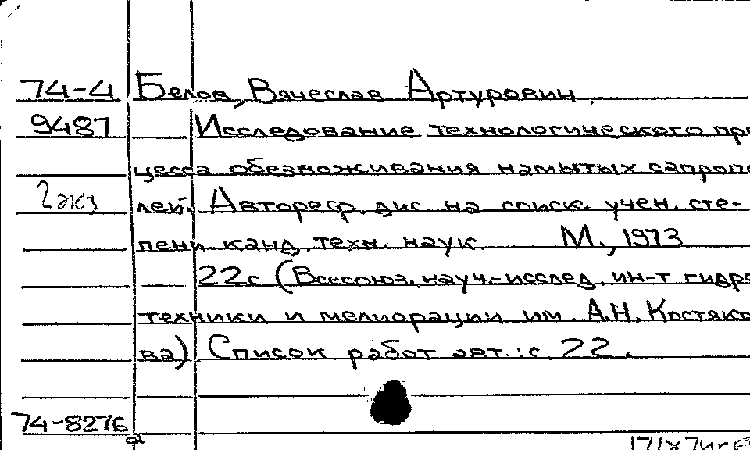 74-4 Белов, Вячеслав Артурович.
9487 Исследование технологического про
цесса обезвоживания намытых сапропе
2 экз лей. Автореф. дис. на соиск. учен. сте-
пени канд. техн. наук. М., 1973
22с (Всесоюз. науч.-исслед. ин-т гидро
техники и мелиорации им. А.Н. Костяко
ва) Список работ авт.: с. 22.
74-8276